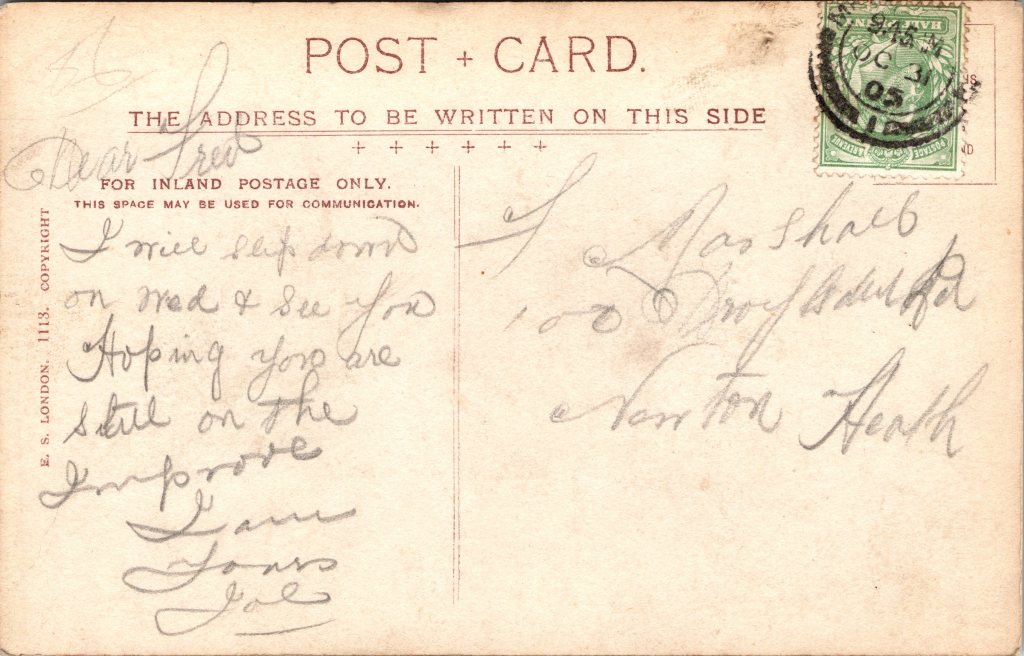 POST + CARD.
THE ADDRESS TO BE WRITTEN ON THIS SIDE
Dear Fred
FOR INLAND POSTAGE ONLY.
THIS SPACE MAY BE USED FOR COMMUNICATION.
I will slip down
on Wed & See You
Hoping you are
still on the
Improve
I am
Yours
Joe
F Marshall
100 Droylsden Rd
Newton Heath
E. S. LONDON. 1113. COPYRIGHT
9.15 M
OC 31
05
HALF
POSTAGE
REVENUE